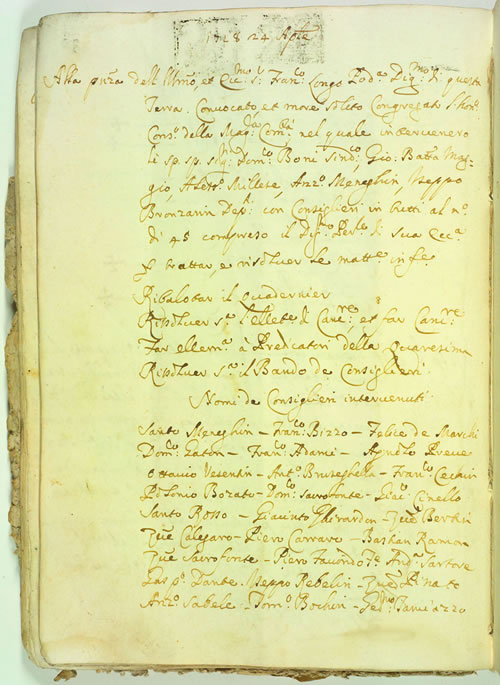 1748 24 Aple
Alla pnza dell Illmo, et Ecc.mo S.r Fran.co Longo Pod.a Dig.mo di questa
Terra. Convocato, et more solito Congregat. l'hon.
Cons.o della Mag.ca Com.tà nel quale intervenero
li sp. sp. Sig.ri Dom.co Boni Sind.co Gio: Batta Mag-
gio, Aless.o Millese, Anz.o Meneghin, Iseppo
Bronzarin Dep.i con Consiglieri in tutti al n.o
di 45 compreso il Dig.mo di Sua Ecc.a
trattar e rissolver le matt.e infe
Ribalotar il quadernier
Rissolver s.a l'ellet.e di Canc.re, et far Canc.re
Far ellem.a à Predicatori della Quaresima
Rissolver s.a il Bando de Consiglieri
Nomi de Consiglieri intervenuti
Santo Meneghin - Fran.co Bizzo - Felice de Marchi
Dom.co Zaton - Fran.co Adami - Agnolo Preve
Ottavio Vesentin - Ant.o Bruseghella - Fran.co Cechin
Polonio Bozato - Dom.co Sacrofonte - Giac.o Cinello
Santo Rosso - Giacinto Ghirardon - Zuè Bertin
Zuè Calegaro - Piero Carraro - Bastian Ramon
Zuè Sacrofonte - Piero And.a Sartore
Gasp.o Dante - Iseppo Rebelin - Zuè Pinato
Anz.o Sabele - Dom.co Bochin -